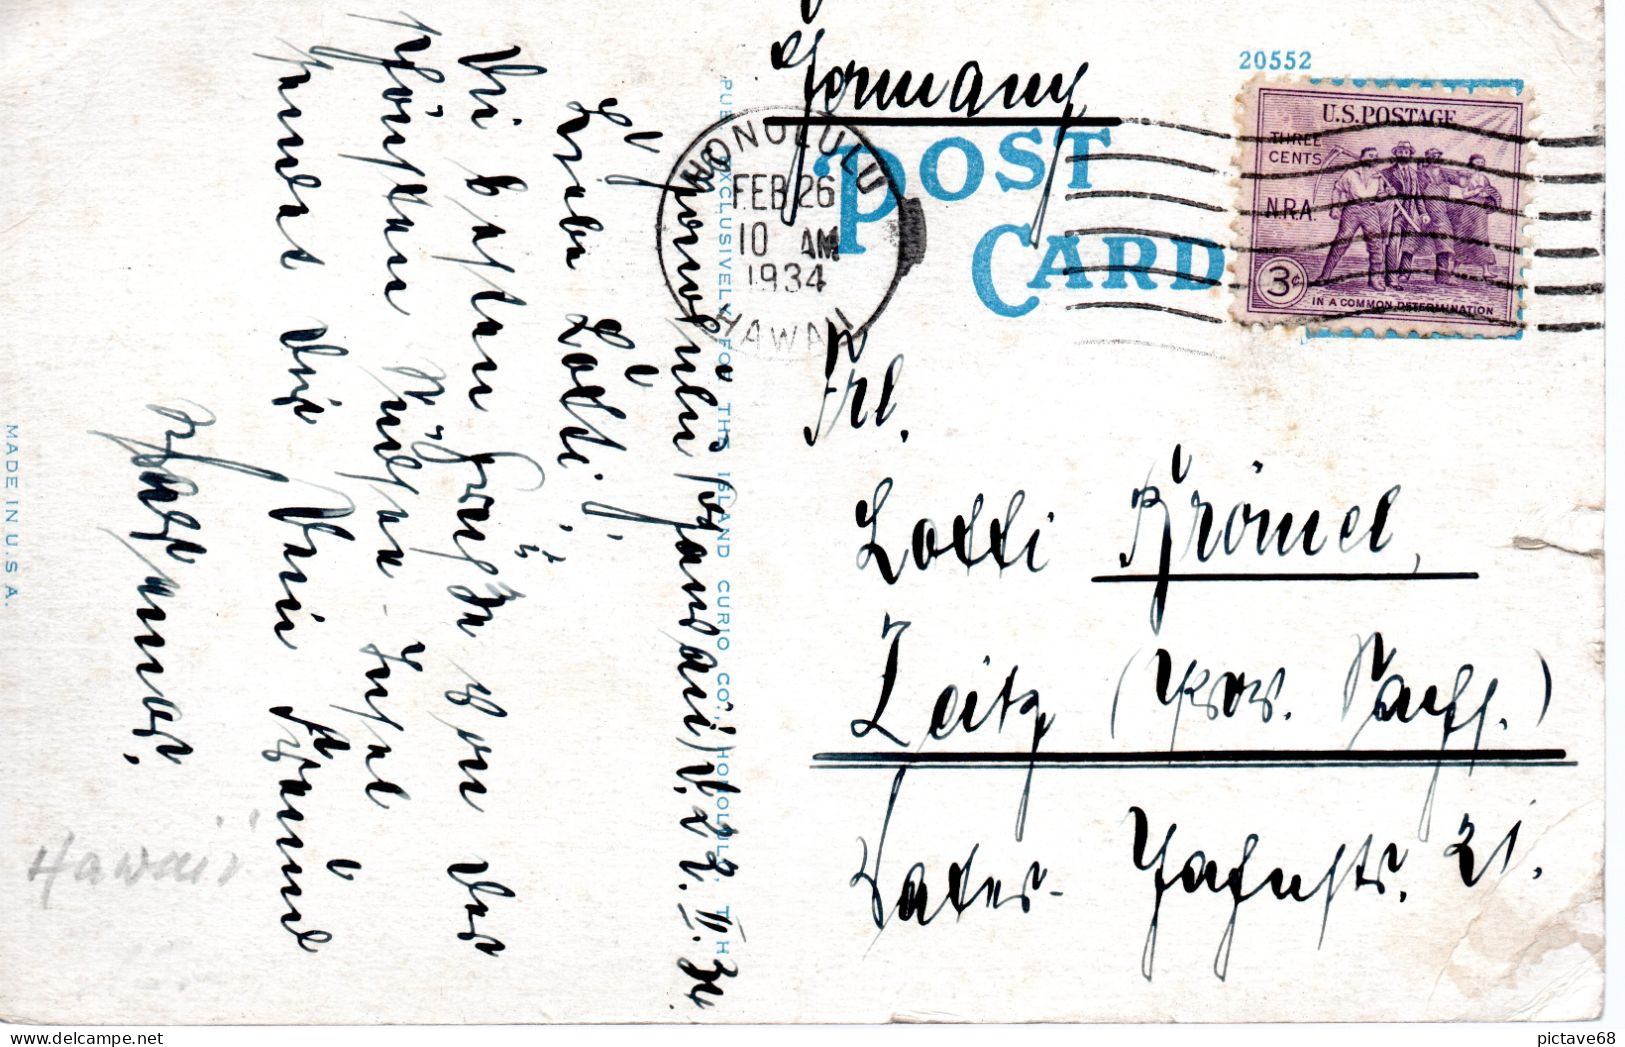 Germany
20552
POST
CARD
HONOLULU
FEB 26
10 AM
1934
HAWAII
U.S. POSTAGE
THREE
CENTS
N.R.A.
3¢
IN A COMMON DETERMINATION
Frl.
Lotti Krömel,
Zeitz (Prov. Sachs.)
Vater-Jahnstr. 21.
PUB. EXCLUSIVELY FOR THE ISLAND CURIO CO., HONOLULU, T. H.
Honolulu (Hawaii) d. 22. II. 34
Liebe Lotti!
Die besten Grüße von der
schönsten Südsee-Insel
sendet dir Dein Freund
Hawaii
MADE IN U.S.A.
pictave68